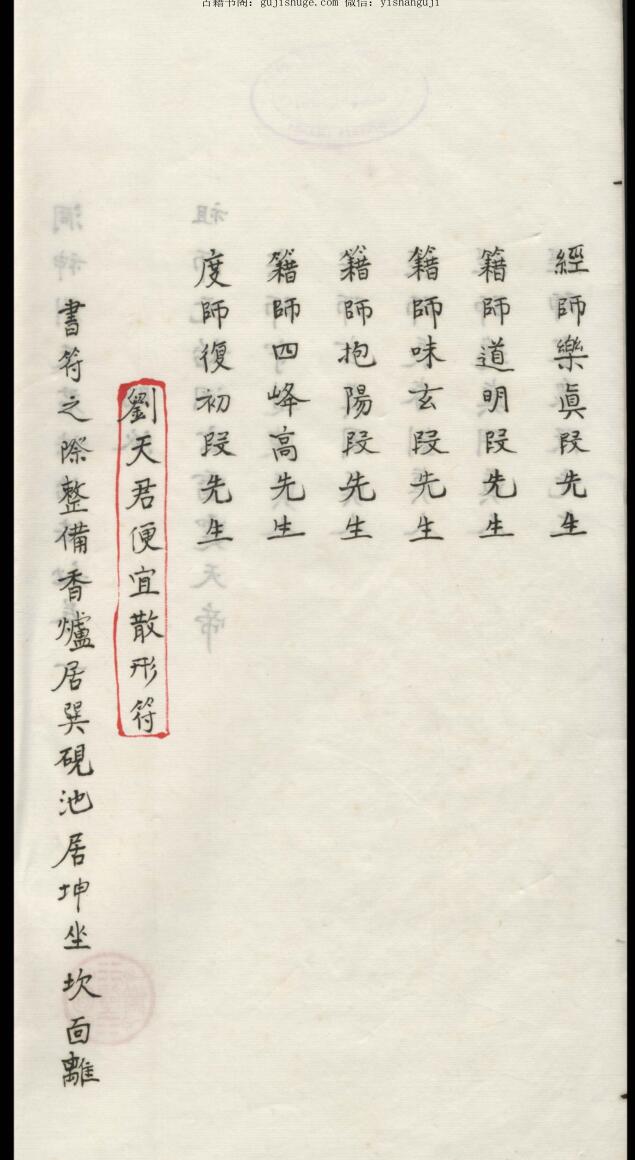 古籍书阁：gujishuge.com 微信：yishanguji
經師樂眞段先生
籍師道明段先生
籍師味玄段先生
籍師抱陽段先生
籍師四峰高先生
度師復初段先生
劉天君便宜散形符
書符之際整備香爐居巽硯池居坤坐坎面離